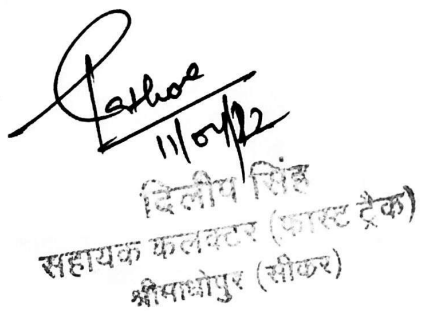 11/04/22
दिलीप सिंह
सहायक कलक्टर (फास्ट ट्रैक)
श्रीमाधोपुर (सीकर)